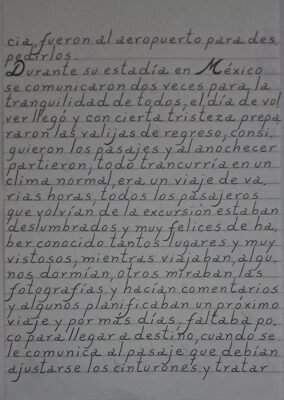 cia, fueron al aeropuerto para des
pedirlos.
Durante su estadía en México
se comunicaron dos veces para la
tranquilidad de todos, el día de vol
ver llegó y con cierta tristeza prepa
raron las valijas de regreso, consi
guieron los pasajes y al anochecer
partieron, todo trancurría en un
clima normal, era un viaje de va
rias horas, todos los pasajeros
que volvían de la excursión estaban
deslumbrados y muy felices de ha
ber conocido tantos lugares y muy
vistosos, mientras viajaban, algu
nos dormían, otros miraban las
fotografías y hacían comentarios
y algunos planificaban un próximo
viaje y por más días, faltaba po
co para llegar a destino, cuando se
le comunica al pasaje que debían
ajustarse los cinturones y tratar